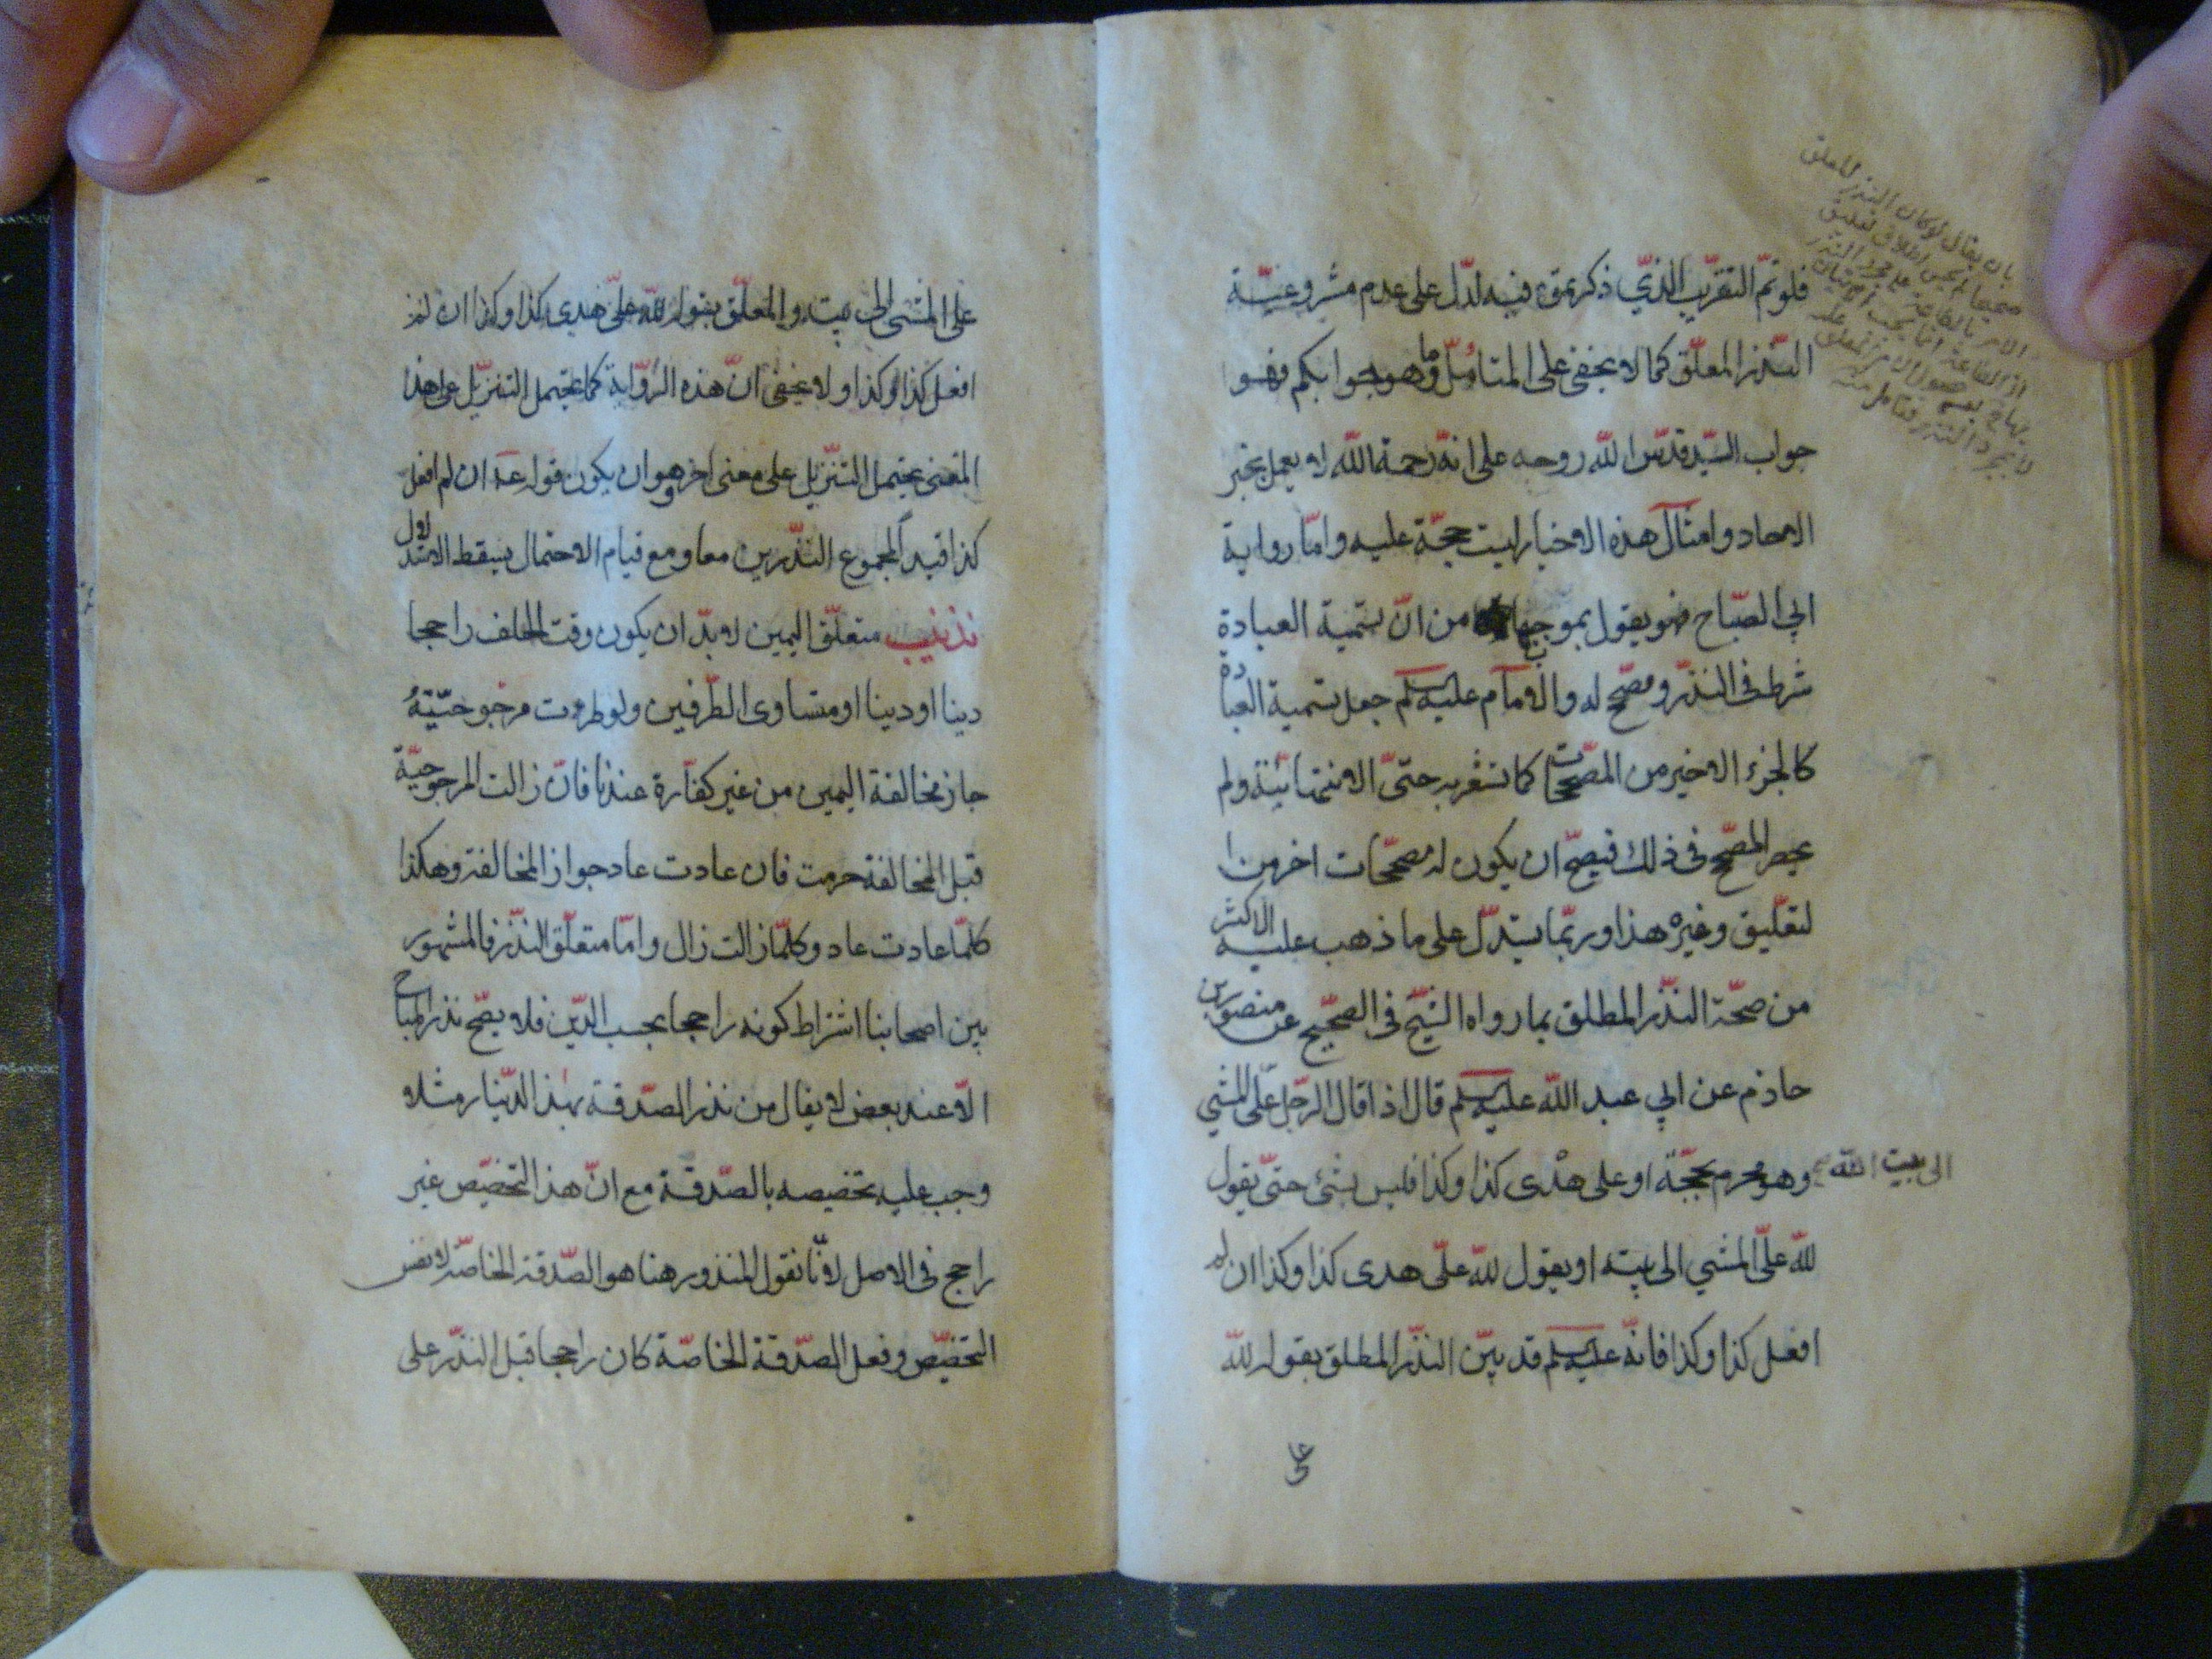 فلو تمّ التقريب الذي ذكرتموه فيه لدلّ على عدم مشروعيّة
النّذر المعلّق كما لا يخفى على المتأمّل وما هو جوابكم فهو
جواب السيّد قدّس الله روحه على انّه رحمة الله لا يعمل بخبر
الاحاد وامثال هذه الاخبار ليت حجّة عليه وامّا رواية
ابي الصّباح فهو يقول بموجبها من انّ تسمية العبادة
شرط في النذر ومصحّح له والامام عليه السلم جعل تسمية العبادة
كالجزء الاخير من المصحّحات كما تشعر به حتىّ الانتهائيّة ولم
يحصر المصحّح في ذلك فيصحّ ان يكون له مصحّحات اخر من ا
لتعليق وغيره هذا وربّما يستدلّ على ما ذهب عليه الاكثر
من صحّة النّذر المطلق بما رواه الشيّخ في الصحيّح عن منصور بن
حاذم عن ابي عبد الله عليه السلم قال اذا قال الرّجل علىّ المشي
الى بيت الله وهو محرم بحجّة او على هدى كذا وكذا فليس بشئ حتىّ يقول
للّه علىّ المشي الى بيته او يقول للّه علىّ هدى كذا وكذا ان لم
افعل كذا وكذا فانّه عليه السلم قد بيّن النذّر المطلق بقوله للّه
على
على المشى الى بيته والمعلّق بقوله للّه علىّ هدى كذا وكذا ان لم
افعل كذا وكذا ولا يخفى انّ هذه الرّواية كما تحتمل التنزيل على هذا
المعنى يحتمل التنزيل على معنى اخر وهو ان يكون قوله ان لم افعل
كذا قيدا لمجموع النّذرين معا ومع قيام الاحتمال يسقط الاستدلال
تذنيب متعلّق اليمين لا بدّ ان يكون وقت الحلف راجحا
دينا او دينا او متساوى الطّرفين ولو طرءت مرجوحيّته
جاز مخالفة اليمين من غير كفّارة عندنا فان زالت المرجوحيّة
قبل المخالفة حرمت فان عادت عاد جواز المخالفة وهكذا
كلمّا عادت عاد وكلمّا زالت زال وامّا متعلّق النذّر فالمشهور
بين اصحابنا اشتراط كونه راجحا بحسب الدّين فلا يصحّ نذر المباح
الاّ عند بعض لا يقال من نذر الصّدقة بهذا الدّينار مثلا
وجب عليه تخصيصه بالصّدقة مع انّ هذا التخصيّص غير
راجح في الاصل لانّا نقول المنذور هنا هو الصّدقة الخاصّة لا نفس
التخصيّص وفعل الصّدقة الخاصّة كان راجحا قبل النذّر على